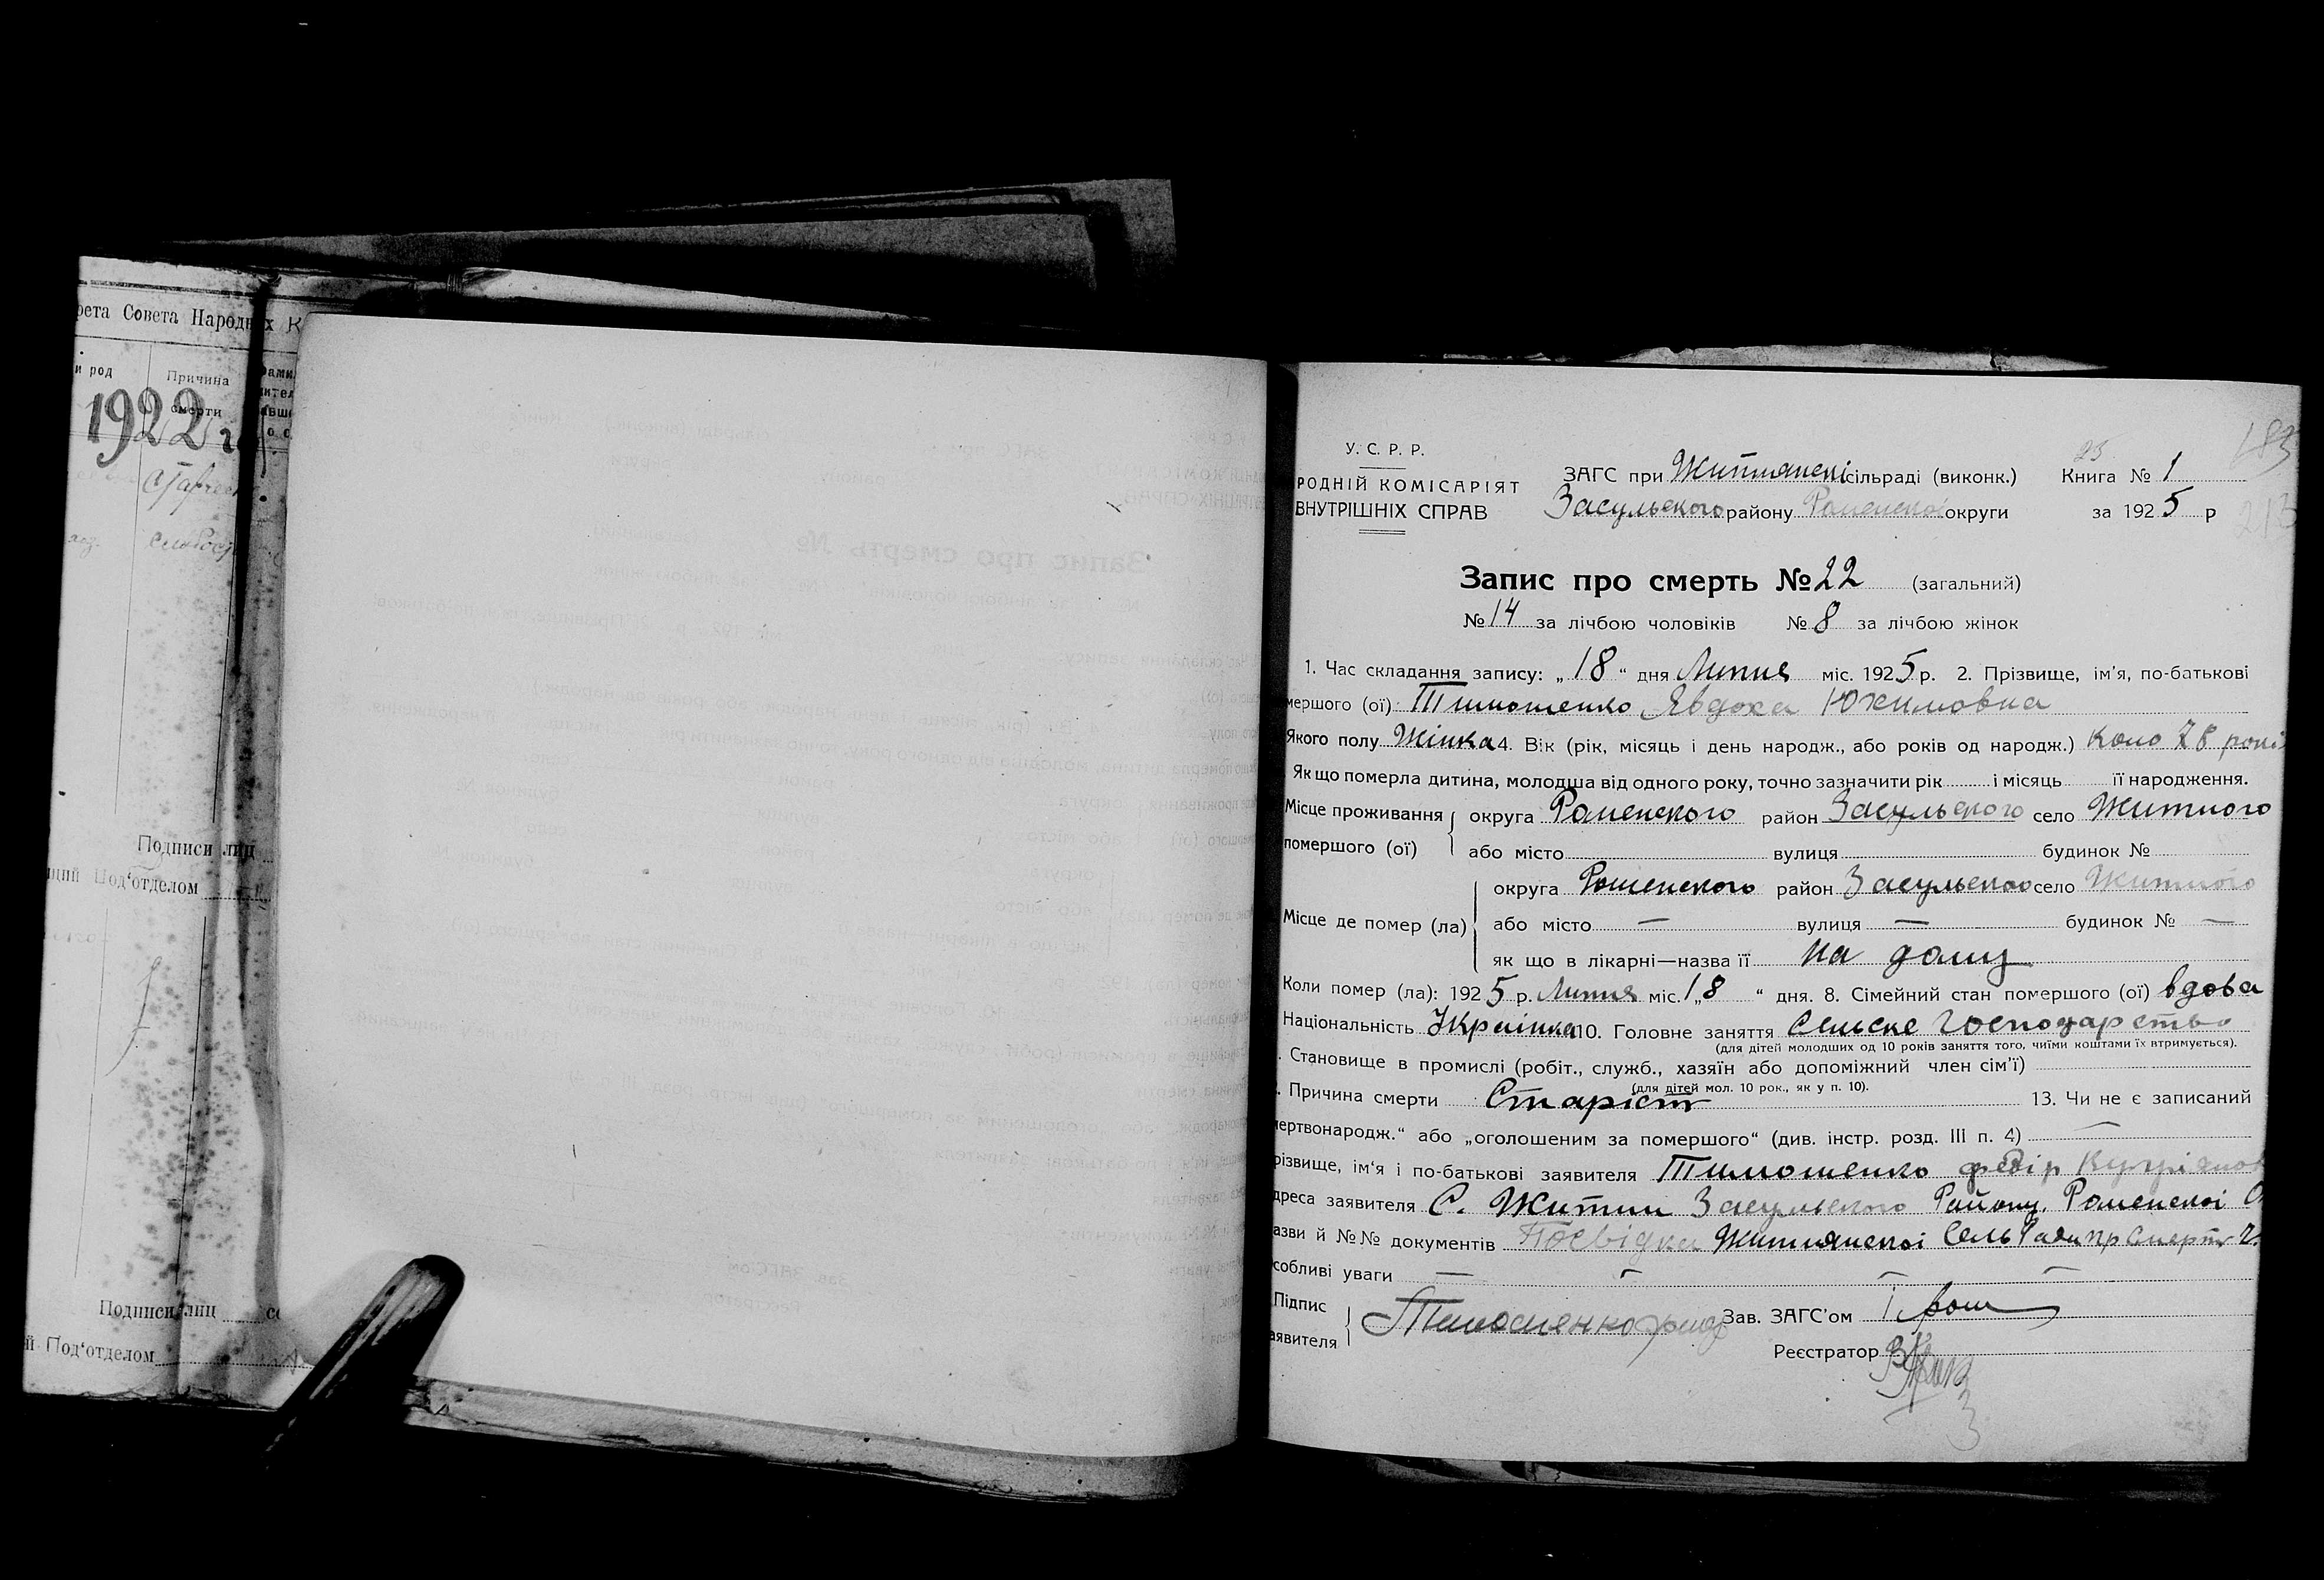 рета Совета Народных К
и род
Причина
смерти
1922 г.
Подписи лиц
щий Под‘отделом
Подписи лиц
й Под‘отделом
У. С. Р. Р.
РОДНІЙ КОМІСАРІЯТ
ВНУТРІШНІХ СПРАВ
ЗАГС при Житнянскі сільраді (виконк.)
Засульского району Роменскої округи
25
Книга № 1
за 1925 р
183
213
Запис про смерть № 22 (загальний)
№ 14 за лічбою чоловіків № 8 за лічбою жінок
1. Час складання запису: „18“ дня Липня міс. 1925 р. 2. Прізвище, ім’я, по-батькові
мершого (ої) Тимошенко Явдоха Юхимовна
Якого полу Жінка 4. Вік (рік, місяць і день народж., або років од народж.) коло 78 років
Якщо померла дитина, молодша від одного року, точно зазначити рік і місяць її народження.
Місце проживання помершого (ої) округа Роменского район Засульского село Житного
або місто вулиця будинок №
Місце де помер (ла) округа Роменского район Засульского село Житного
або місто — вулиця — будинок № —
як що в лікарні—назва її на дому
Коли помер (ла): 1925 р. Липня міс. „18“ дня. 8. Сімейний стан помершого (ої) вдова
Національність Украінка 10. Головне заняття Сельске Господарство
(для дітей молодших од 10 років заняття того, чиїми коштами їх втримується).
. Становище в промислі (робіт., служб., хазяїн або допоміжний член сім’ї)
(для дітей мол. 10 рок., як у п. 10).
. Причина смерти Старість 13. Чи не є записаний
мертвонародж.“ або „оголошеним за помершого“ (див. інстр. розд. III п. 4) —
різвище, ім‘я і по-батькові заявителя Тимошенко Федір
дреса заявителя С. Житни Засульского Району, Роменскоі О
азви й №№ документів Посвідка Житнянскоі
собливі уваги — — — —
Підпис
аявителя
Тимошенко
Зав. ЗАГС’ом
Реєстратор